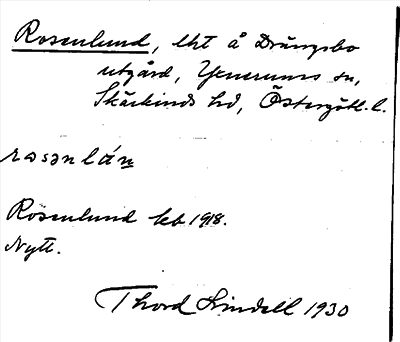 Rosenlund, lht å Drängsbo
utgård, Yxnerums sn,
Skärkinds hd, Östergötl. l.
rosənlán
Rosenlund kb 1918.
Nytt.
Thord Lindell 1930